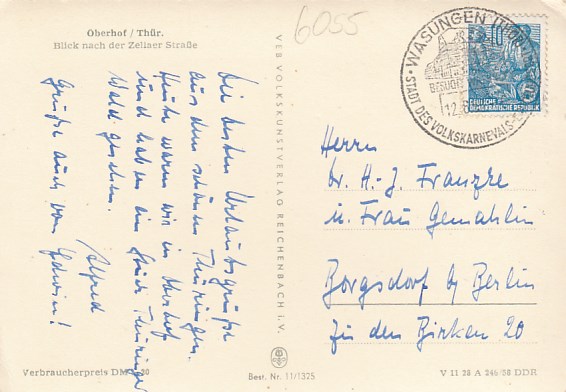 Oberhof / Thür.
Blick nach der Zellaer Straße
6055
WASUNGEN (THÜR)
BESUCH
12.
STADT DES VOLKSKARNEVALS
10
DEUTSCHE
DEMOKRATISCHE REPUBLIK
Die besten Urlaubsgrüße
aus dem schönen Thüringen.
Heute waren wir in Oberhof
und haben ein Stück Thüringer
Wald gesehen.
Alfred
Grüße auch von Edwin!
VEB VOLKSKUNSTVERLAG REICHENBACH I. V.
Herrn
Dr. H.-J. Franzke
u. Frau Gemahlin
Borgsdorf b/ Berlin
Zu den Birken 20
Verbraucherpreis DM
Best. Nr. 11/1325
V 11 28 A 246/58 DDR